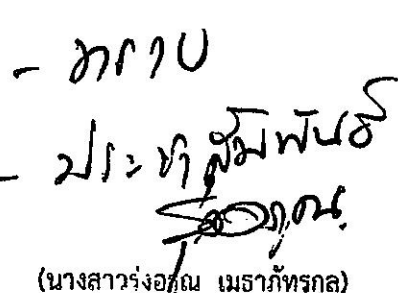 - ทราบ
- ประชาสัมพันธ์
(นางสาวรุ่งอรุณ เมธาภัทรกุล)